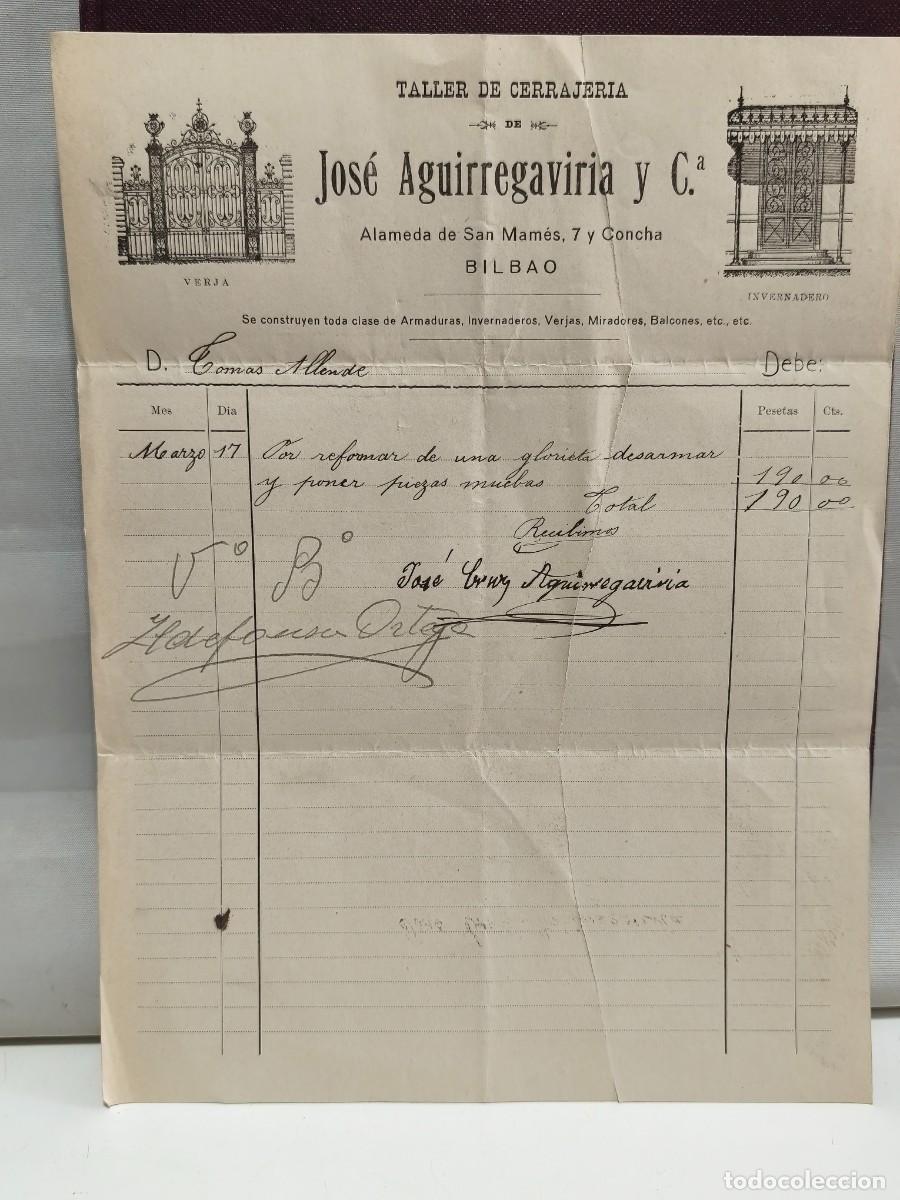 TALLER DE CERRAJERIA
DE
José Aguirregaviria y C.ª
Alameda de San Mamés, 7 y Concha
BILBAO
VERJA
INVERNADERO
Se construyen toda clase de Armaduras, Invernaderos, Verjas, Miradores, Balcones, etc., etc.
D. Tomas Allende Debe:
Mes Dia Pesetas Cts.
Marzo 17 Por reformar de una glorieta desarmar
y poner piezas muebas 190 00
Total 190 00
Recibimos
Vº Bº José Cruz Aguirregaviria
Ildefonso Ortega
todocoleccion